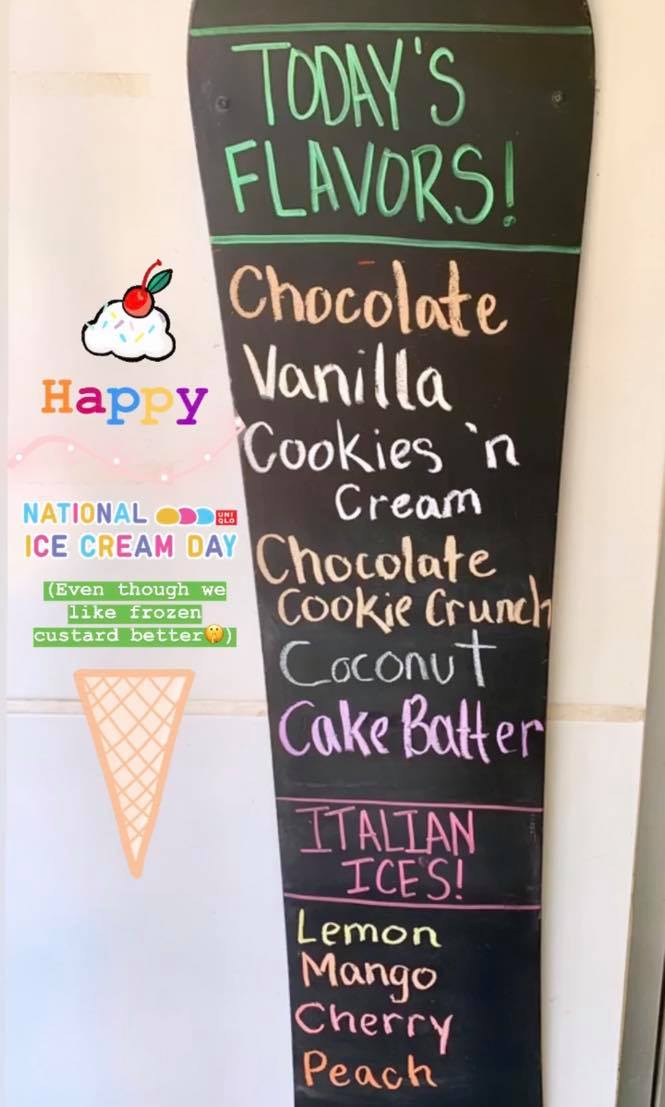 TODAY'S
FLAVORS!
Chocolate
Vanilla
Cookies 'n
Cream
Chocolate
Cookie Crunch
Coconut
Cake Batter
ITALIAN
ICES!
Lemon
Mango
Cherry
Peach
Happy
NATIONAL
UNI
QLO
ICE CREAM DAY
(Even though we
like frozen
custard better🤫)